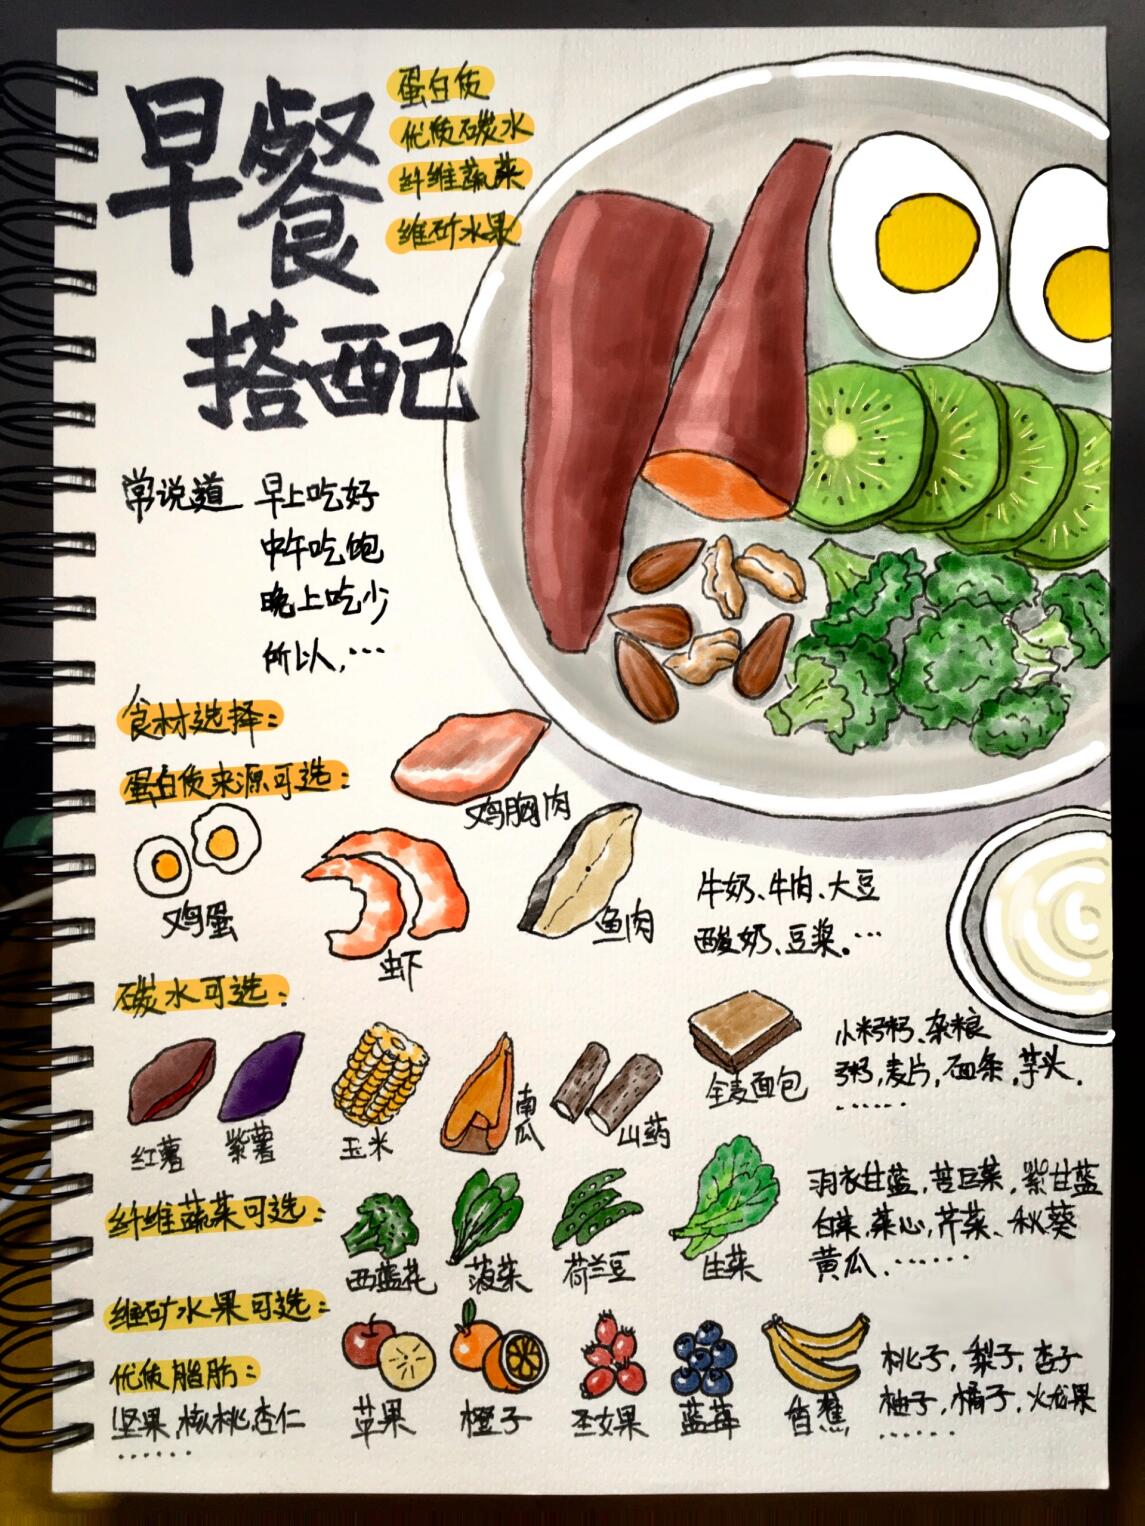 早餐
搭配
蛋白质
优质碳水
纤维蔬菜
维矿水果
常说道 早上吃好
中午吃饱
晚上吃少
所以,…
食材选择:
蛋白质来源可选:
鸡胸肉
鸡蛋
虾
鱼肉
牛奶、牛肉、大豆
酸奶、豆浆。…
碳水可选:
红薯
紫薯
玉米
南瓜
山药
全麦面包
小米粥、杂粮
粥,麦片,面条,芋头.
......
纤维蔬菜可选:
西蓝花
菠菜
荷兰豆
生菜
羽衣甘蓝,苦苣菜,紫甘蓝
白菜,菜心,芹菜、秋葵
黄瓜.......
维矿水果可选:
苹果
橙子
圣女果
蓝莓
香蕉
桃子,梨子,杏子
柚子,橘子,火龙果
......
优质脂肪:
坚果,核桃,杏仁
......